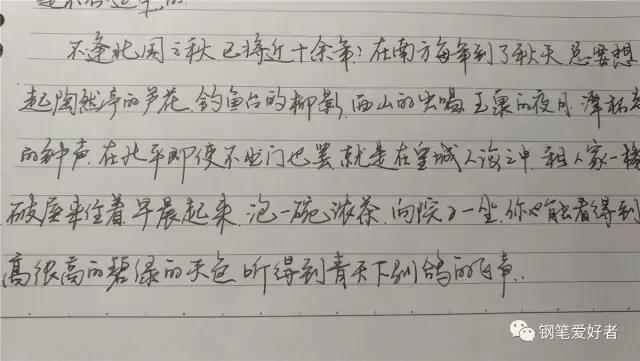 不逢北国之秋 已将近十余年了 在南方每年到了秋天 总要想
起陶然亭的芦花 钓鱼台的柳影 西山的虫唱 玉泉的夜月 潭柘寺
的钟声 在北平即使不出门也罢 就是在皇城人海之中 租人家一椽
破屋来住着 早晨起来 泡一碗浓茶 向院子一坐 你也能看得到
高很高的碧绿的天色 听得到青天下驯鸽的飞声
钢笔爱好者